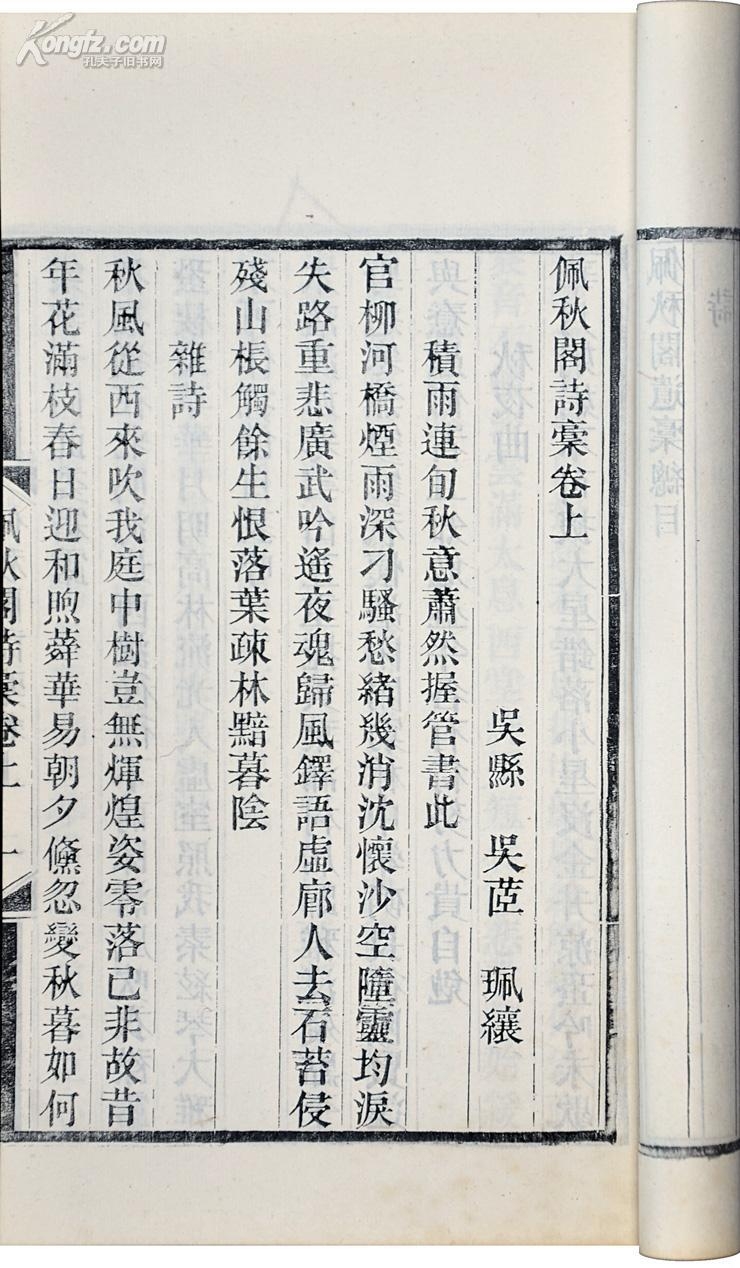 Kongfz.com
孔夫子旧书网
佩秋閣遺稾總目
詩
佩秋閣詩稾卷上
吳縣 吳茝 珮纕
積雨連旬秋意蕭然握管書此
官柳河橋煙雨深刁騷愁緒幾消沈懷沙空墮靈均淚
失路重悲廣武吟遙夜魂歸風鐸語虛廊人去石苔侵
殘山棖觸餘生恨落葉疎林黯暮陰
雜詩
秋風從西來吹我庭中樹豈無煇煌姿零落已非故昔
年花滿枝春日迎和煦蕣華易朝夕儵忽變秋暮如何
佩秋閣詩稾卷上 一